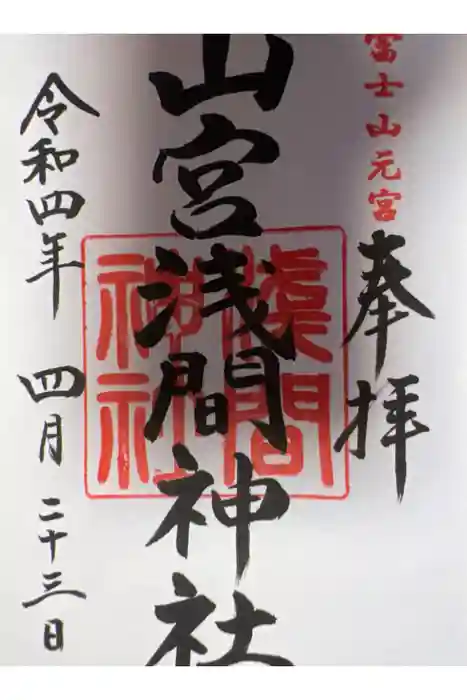 富士山元宮
奉拝
山宮浅間神社
令和四年 四月 二十三日